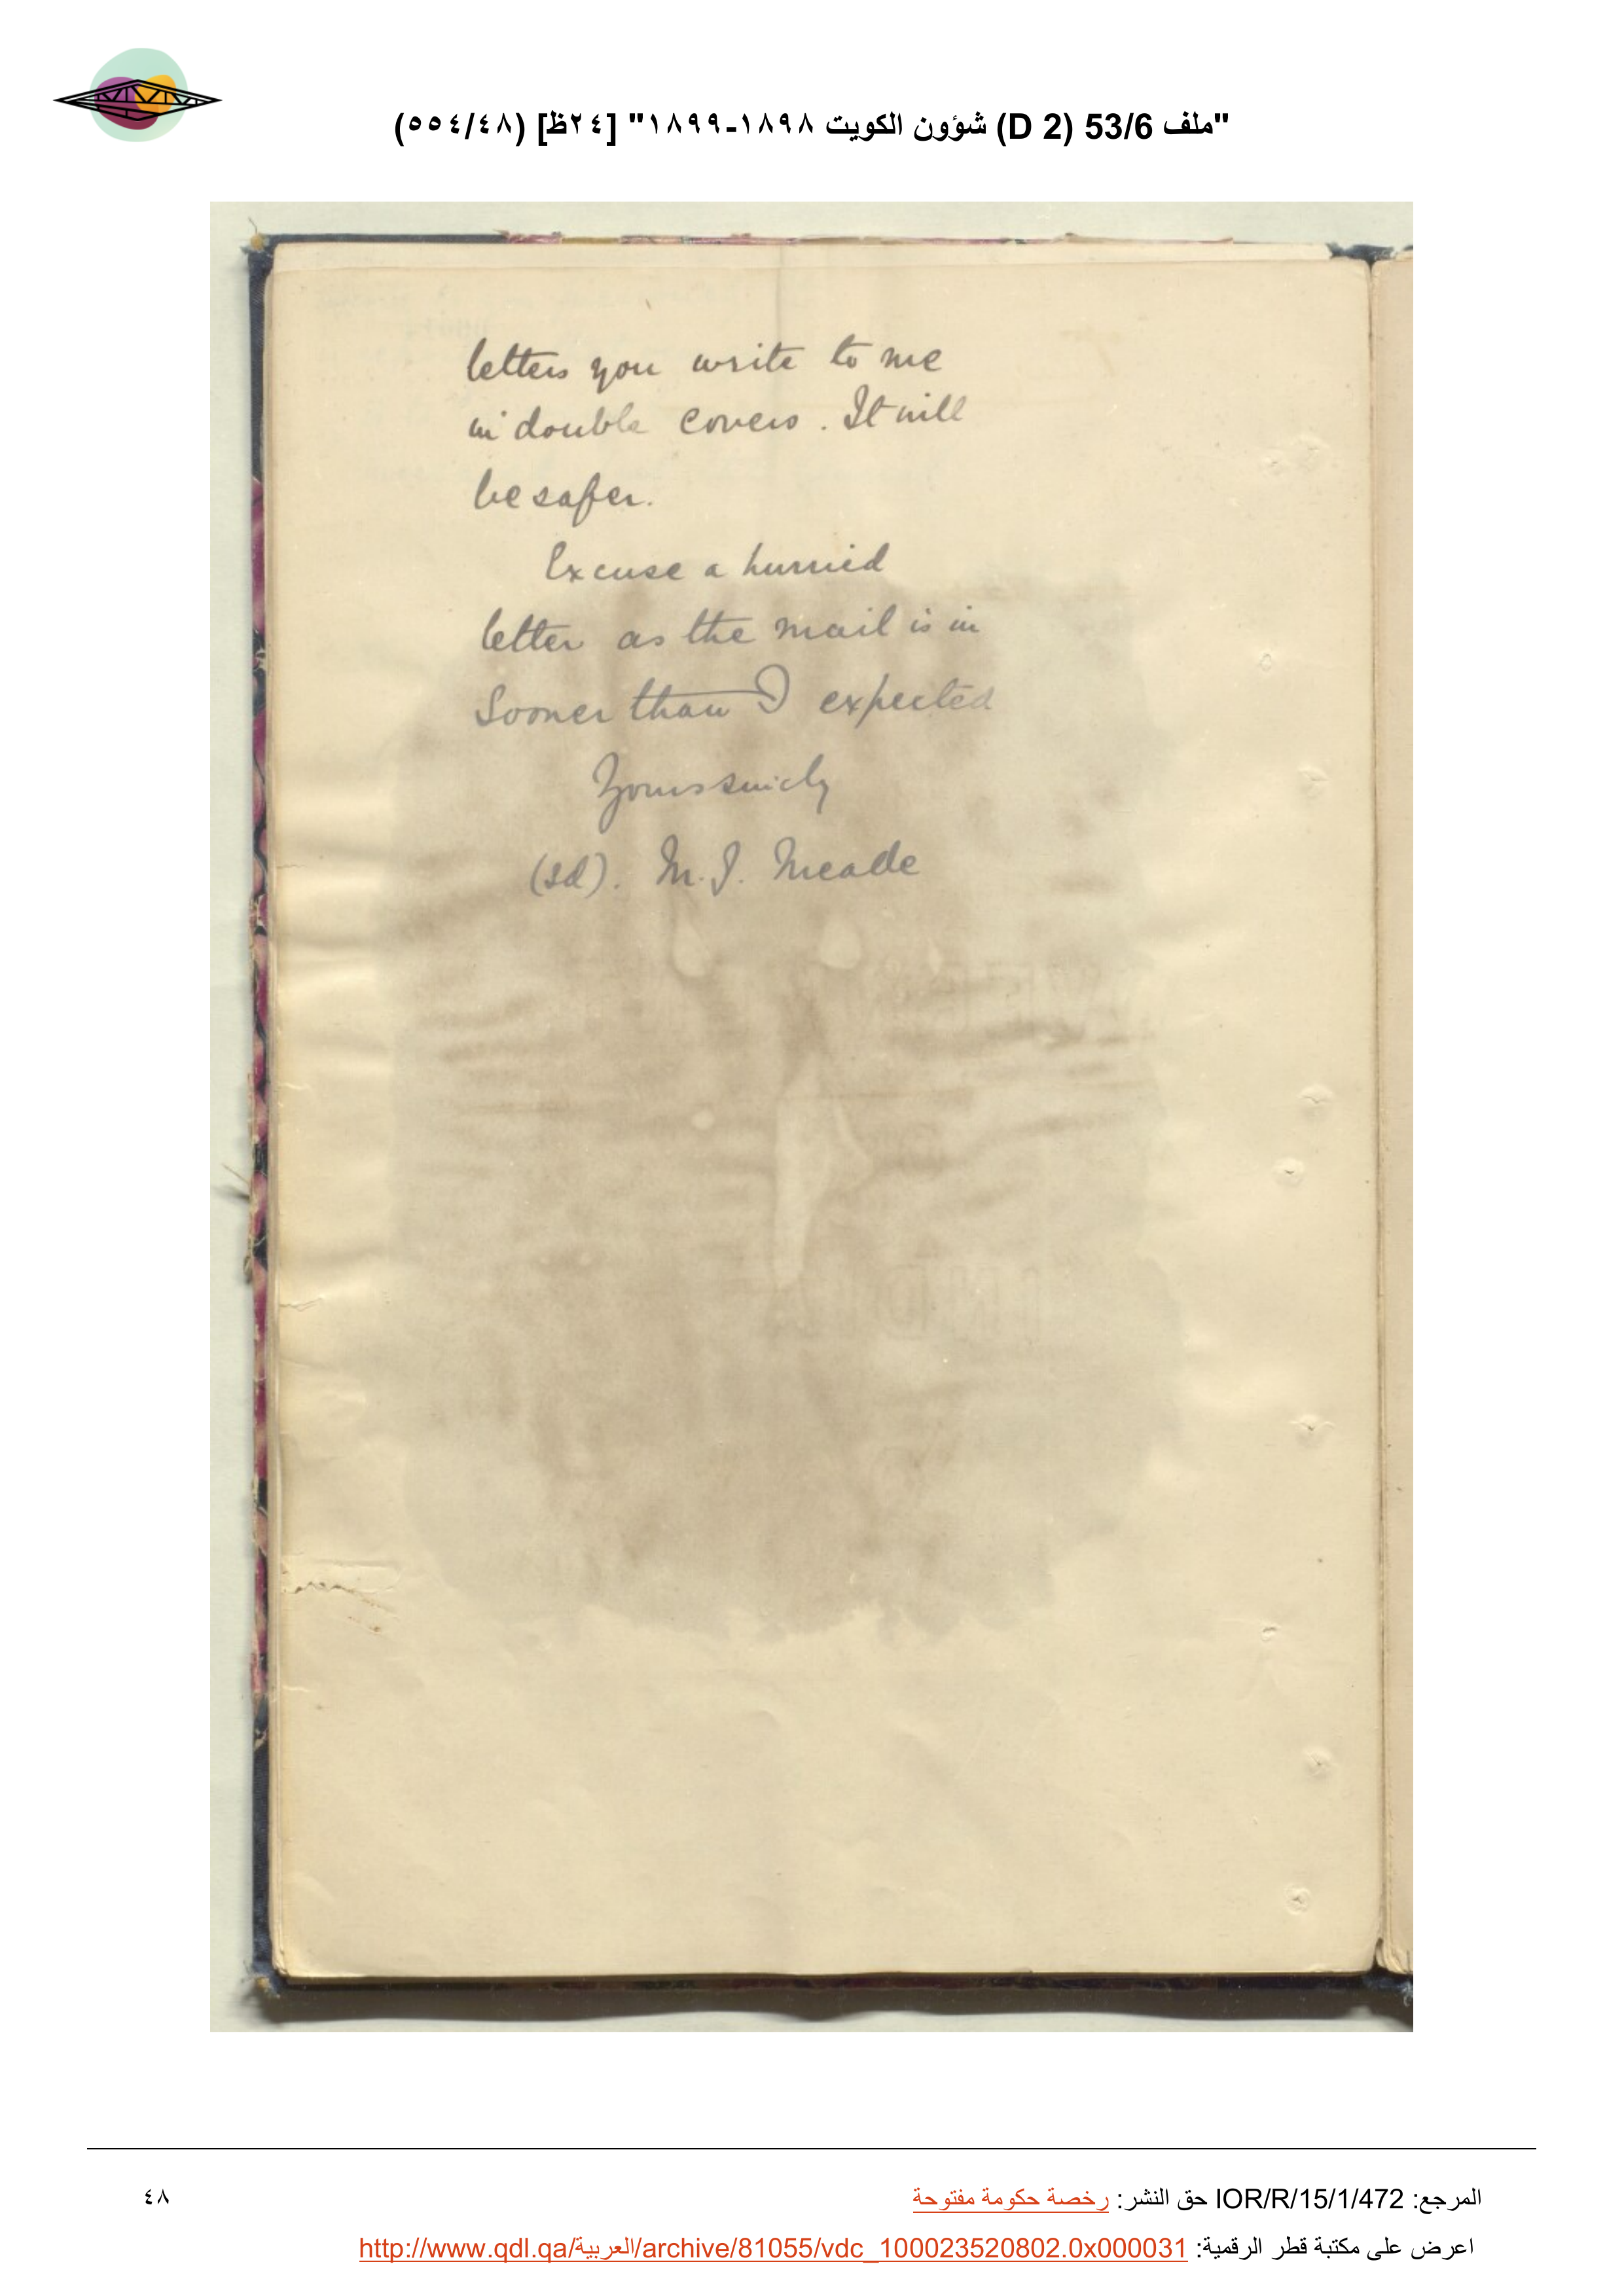 "ملف 53/6 (D 2) شؤون الكويت ١٨٩٨-١٨٩٩" [٢٤ظ] (٥٥٤/٤٨)
letters you write to me
in double covers. It will
be safer.
Excuse a hurried
letter as the mail is in
sooner than I expected
Yours sincly
(sd). M. J. Meade
INDIA
المرجع: IOR/R/15/1/472 حق النشر: رخصة حكومة مفتوحة
٤٨
اعرض على مكتبة قطر الرقمية: http://www.qdl.qa/العربية/archive/81055/vdc_100023520802.0x000031